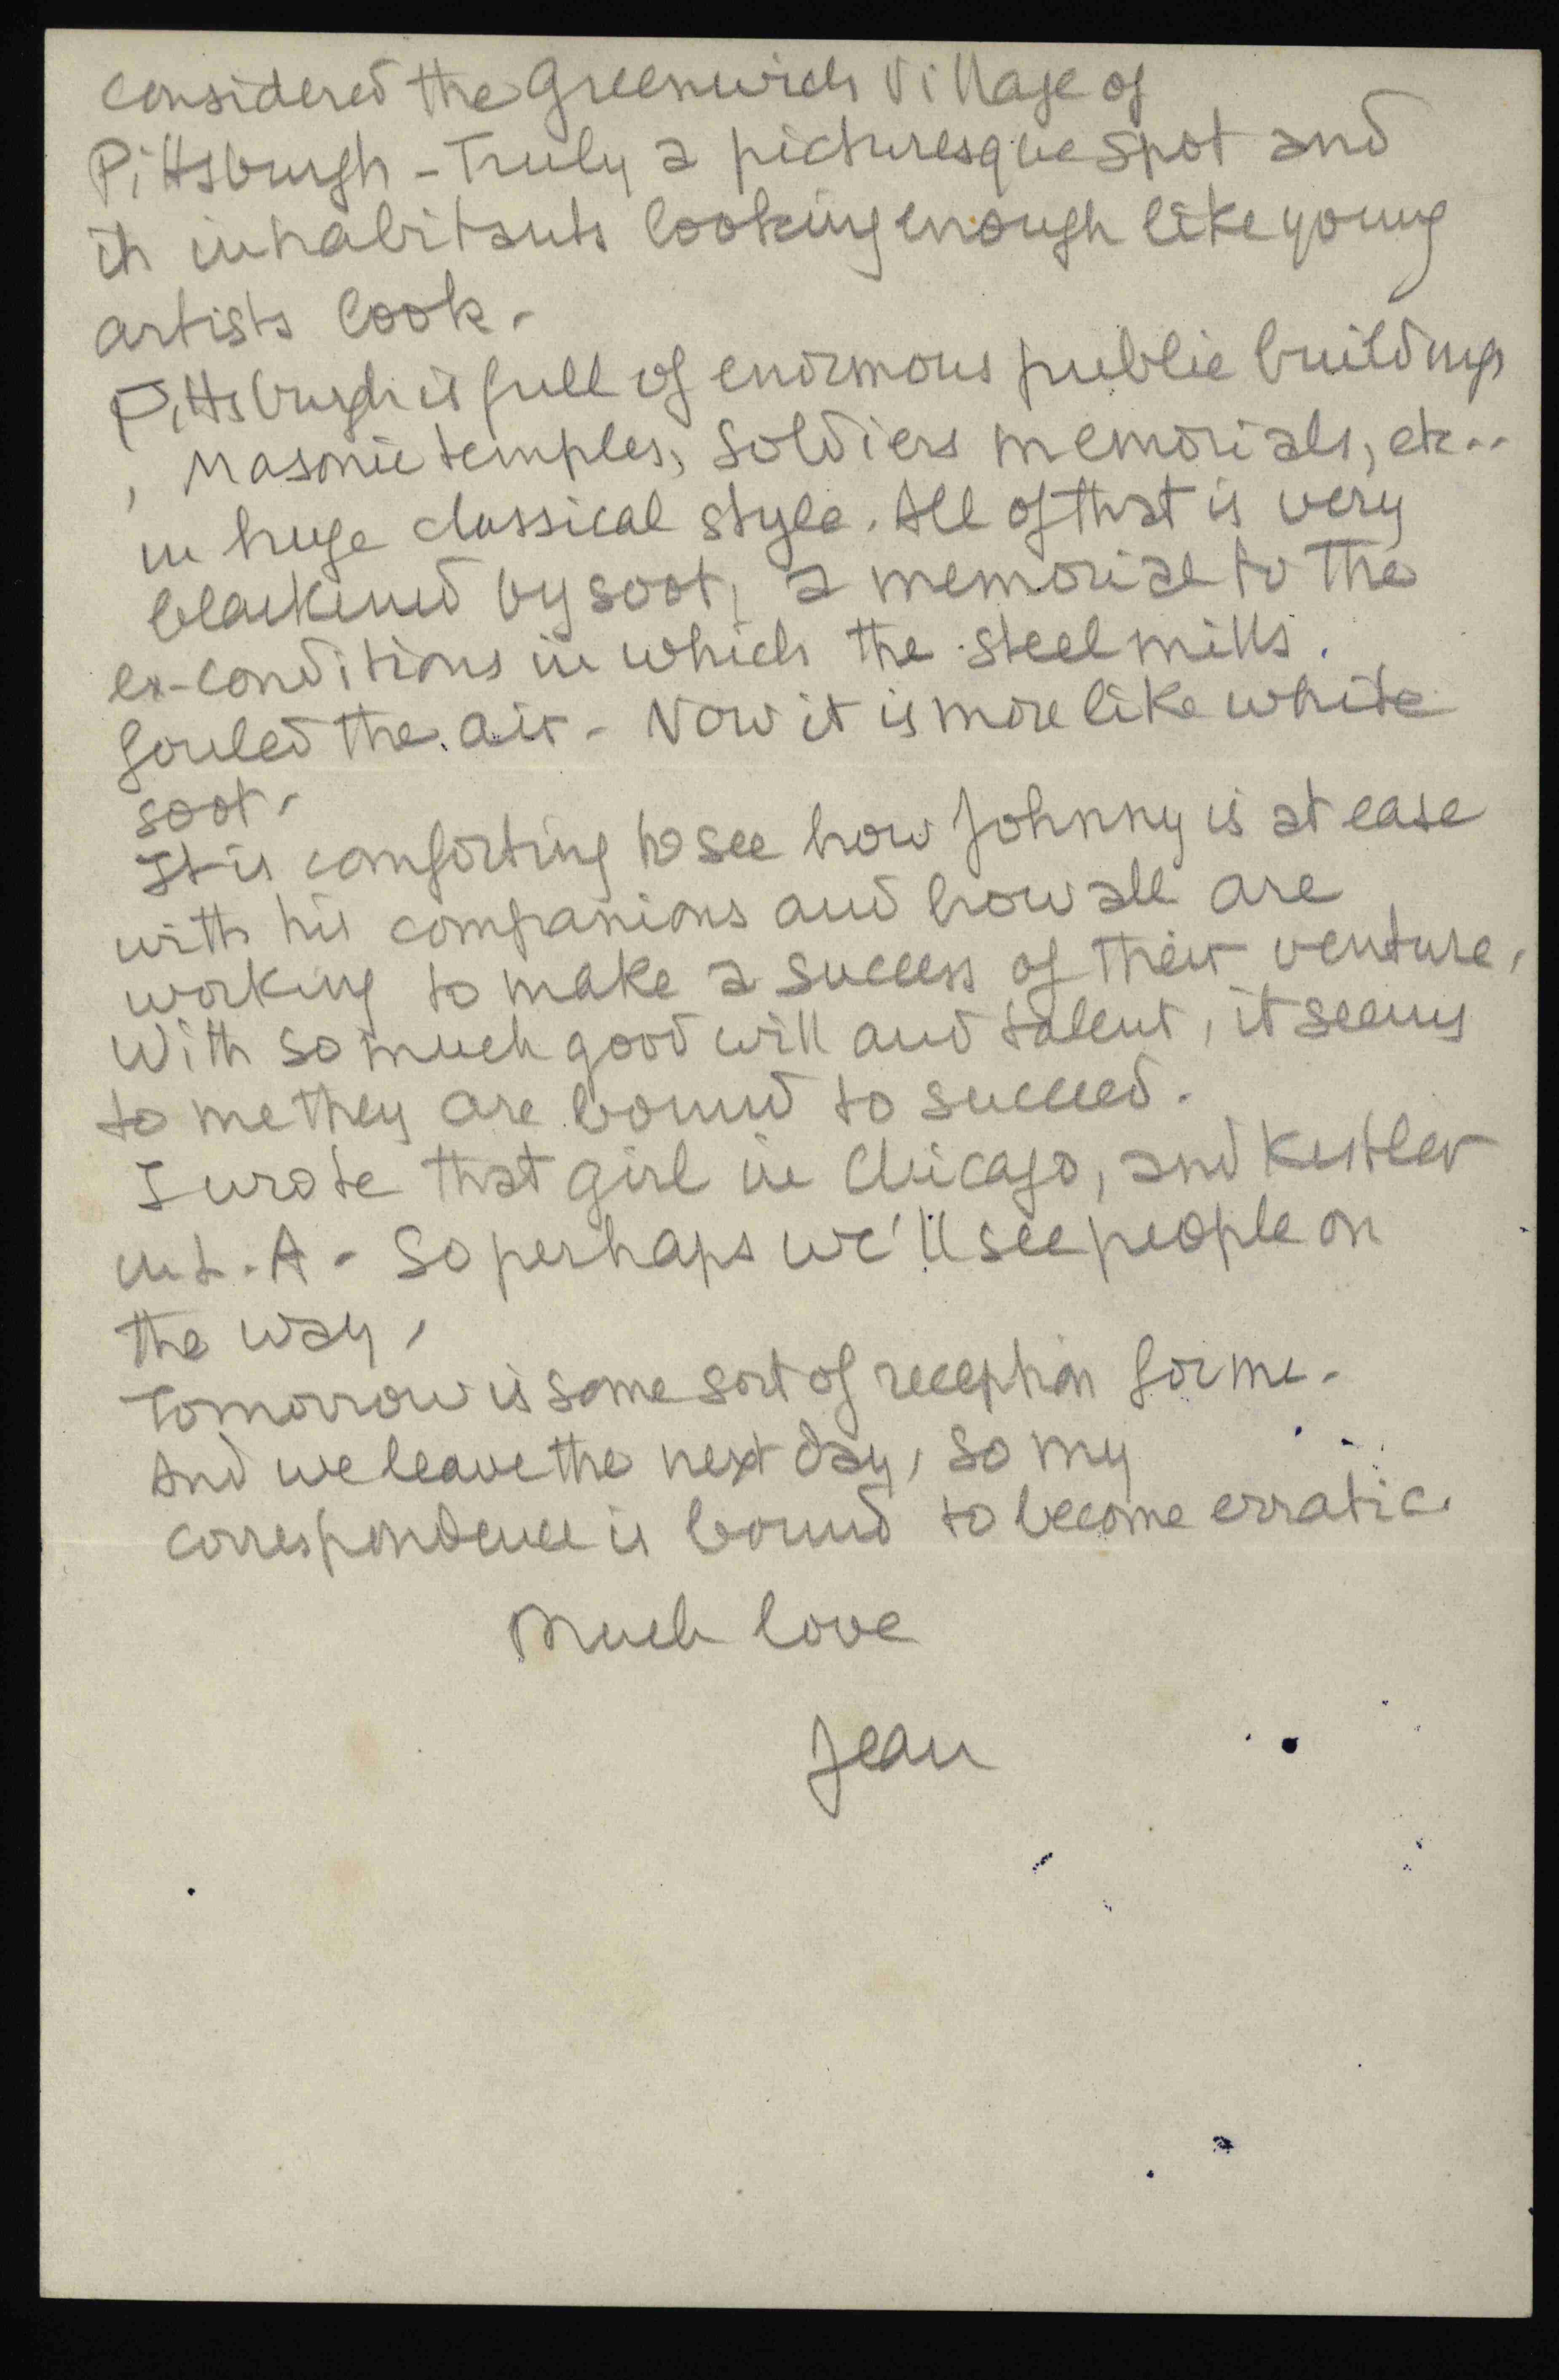 considered the Greenwich Village of
Pittsburgh - Truly a picturesque spot and
its inhabitants looking enough like young
artists look.
Pittsburgh is full of enormous public buildings
, Masonic temples, Soldiers memorials, etc..
in huge classical style. All of that is very
blackened by soot, a memorial to the
ex-conditions in which the steel mills
fouled the air. Now it is more like white
soot.
It is comforting to see how Johnny is at ease
with his companions and how all are
working to make a success of their venture.
With so much good will and talent, it seems
to me they are bound to succeed.
I wrote that girl in Chicago, and Kistler
in L.A. So perhaps we'll see people on
the way.
Tomorrow is some sort of reception for me.
And we leave the next day, so my
correspondence is bound to become erratic.
Much love
Jean